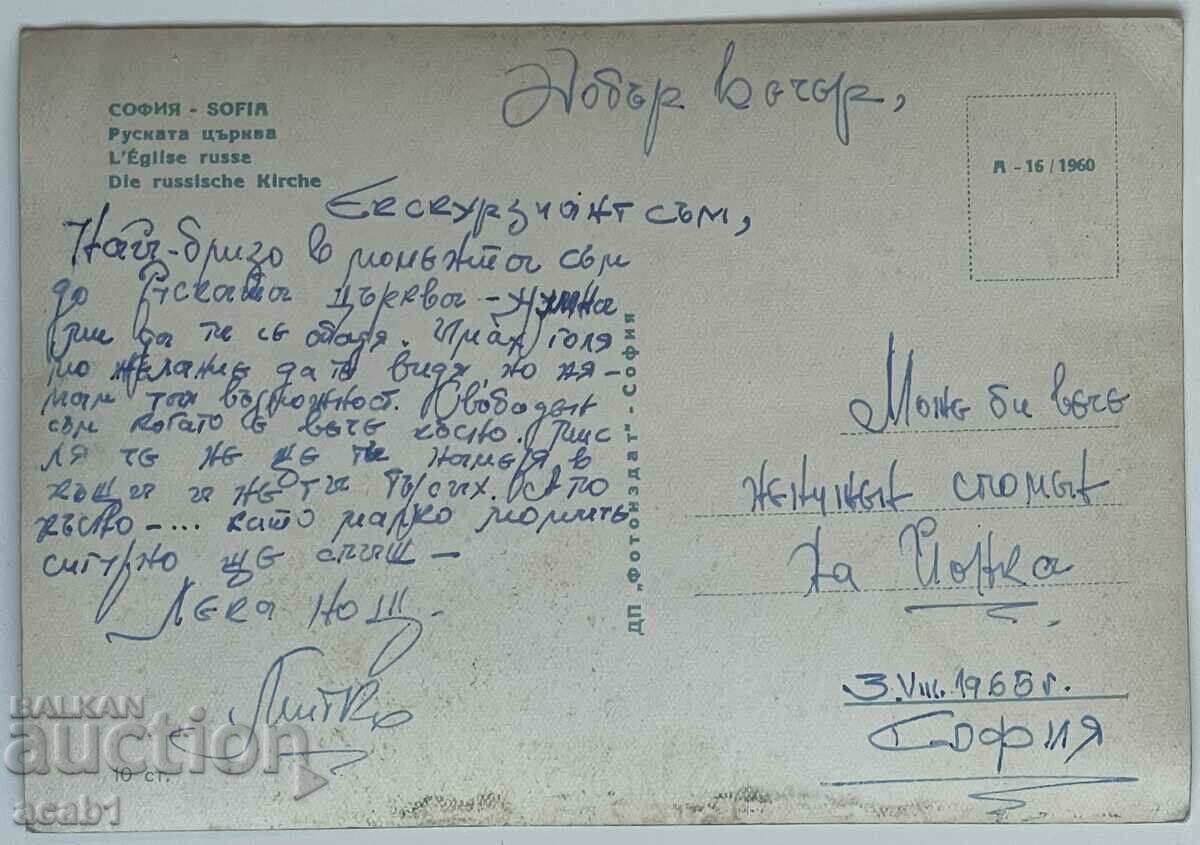 Добър вечер,
СОФИЯ - SOFIA
Руската църква
L'Église russe
Die russische Kirche
А - 16 / 1960
Екскурзиант съм,
Най-близо в момента съм
до Руската църква -
ми да ти се обадя. Имах голя
мо желание да те видя, но ня-
мам тая възможност. Свободен
съм когато е вече късно. Мис
ля че не ще те намеря в
къщи и не ти търсих. А по
късно - ... като малко момиче
сигурно ще спиш -
Лека нощ.
Митко
10 ст.
ДП „Фотоиздат" - София
Може би вече
ненужен спомен
На Йонка
3.VIII.1965 г.
София
BALKAN
auction
acab1